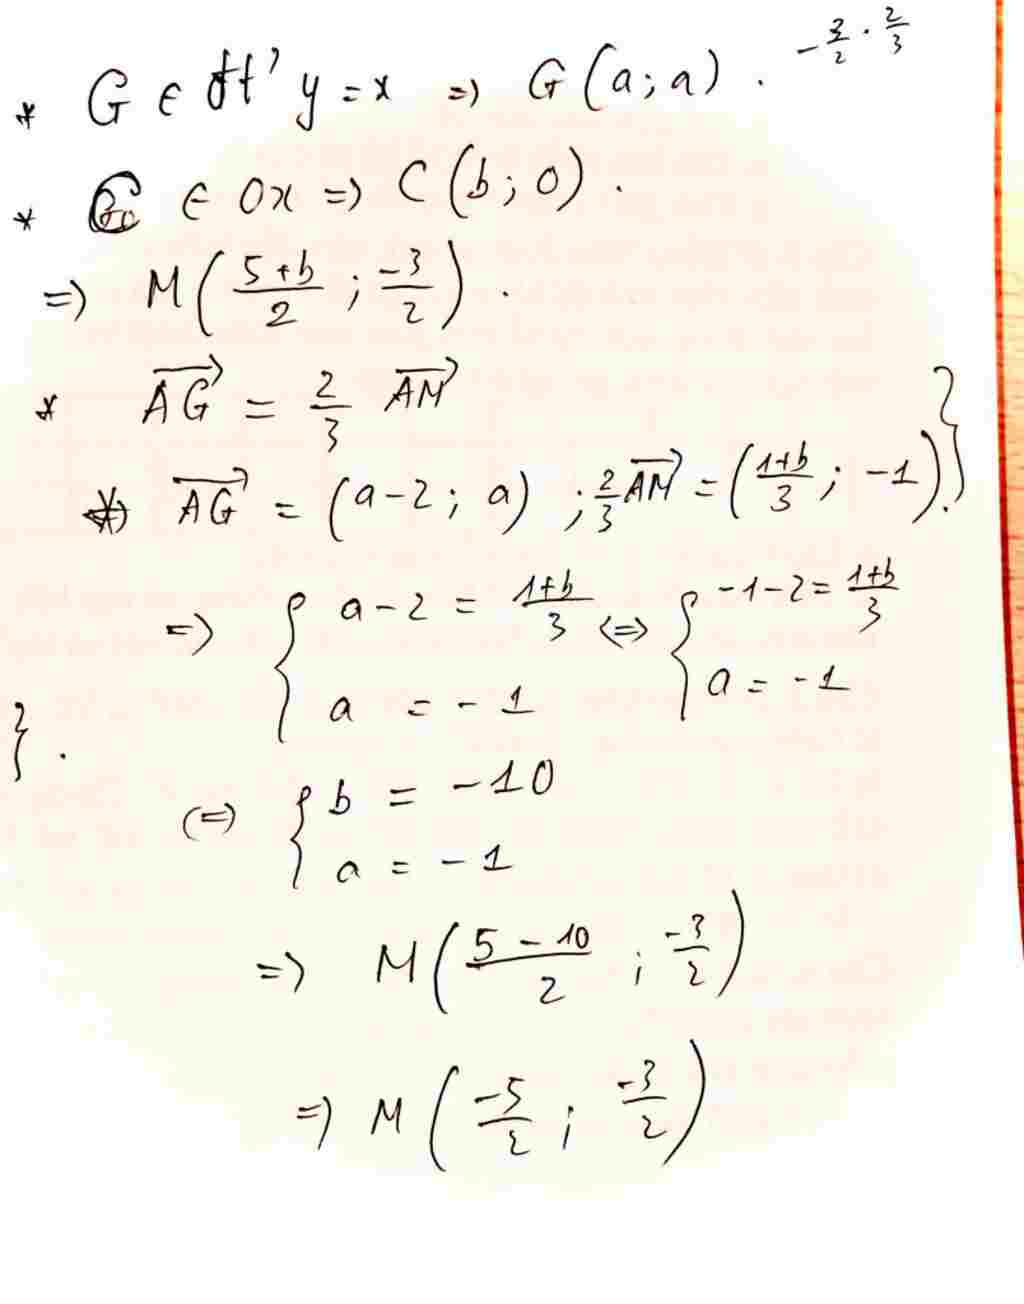 * G ∈ đt' y = x => G(a; a). -3/2 . 2/3
* C ∈ Ox => C(b; 0).
=> M((5+b)/2; -3/2).
* →AG = 2/3 →AM
→AG = (a-2; a) ; 2/3 →AM = ((1+b)/3; -1) }.
=> { a - 2 = (1+b)/3 <=> { -1-2 = (1+b)/3
a = -1 a = -1
}.
(=) { b = -10
a = -1
=> M((5-10)/2; -3/2)
=> M(-5/2; -3/2)